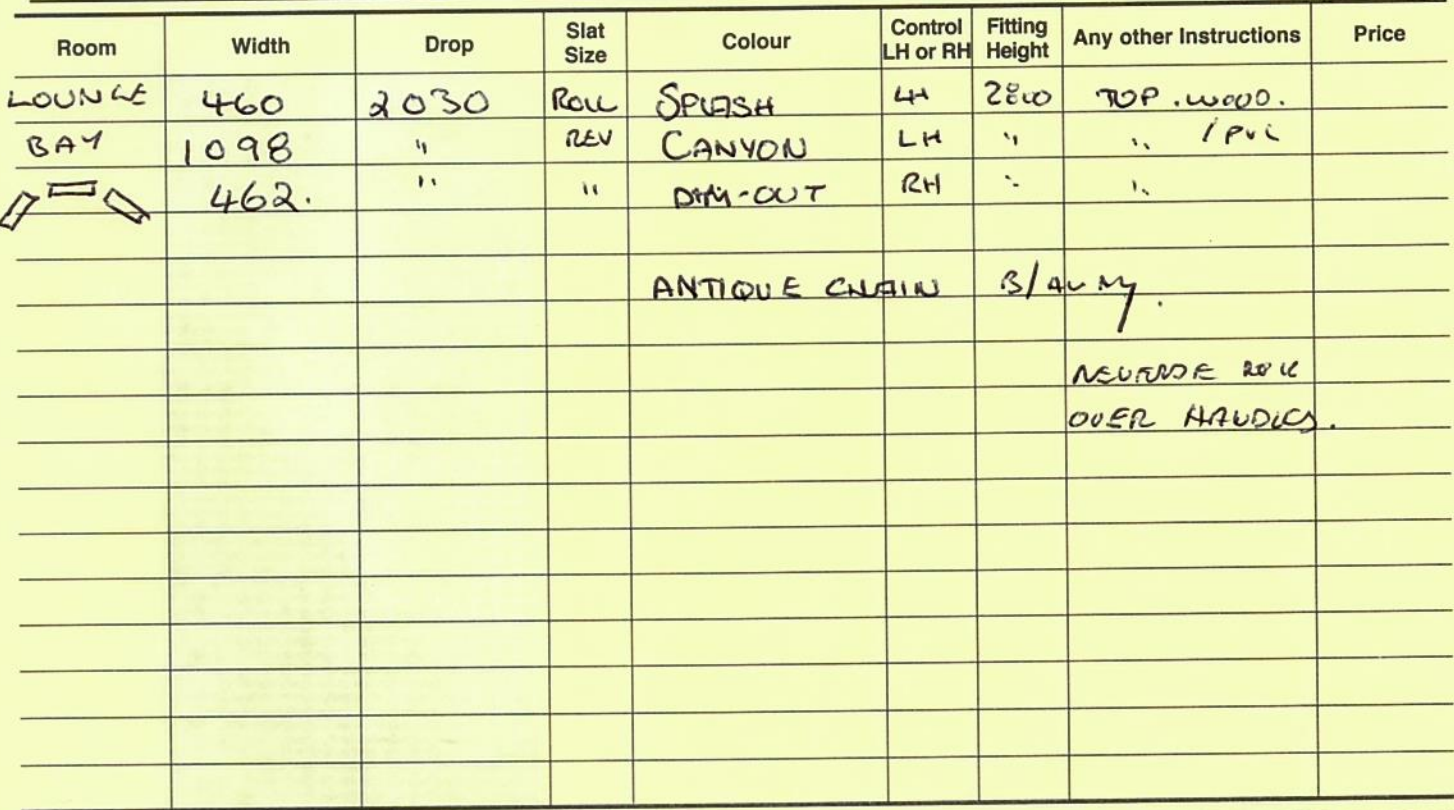 Room Width Drop Slat Size Colour Control LH or RH Fitting Height Any other Instructions Price
LOUNGE 460 2030 ROLL SPLASH LH TOP. WOOD.
BAY 1098 " REV CANYON LH " " / PVC
462. " " DIM-OUT RH " "
ANTIQUE CHAIN
REVERSE ROLL
OVER HANDLES.